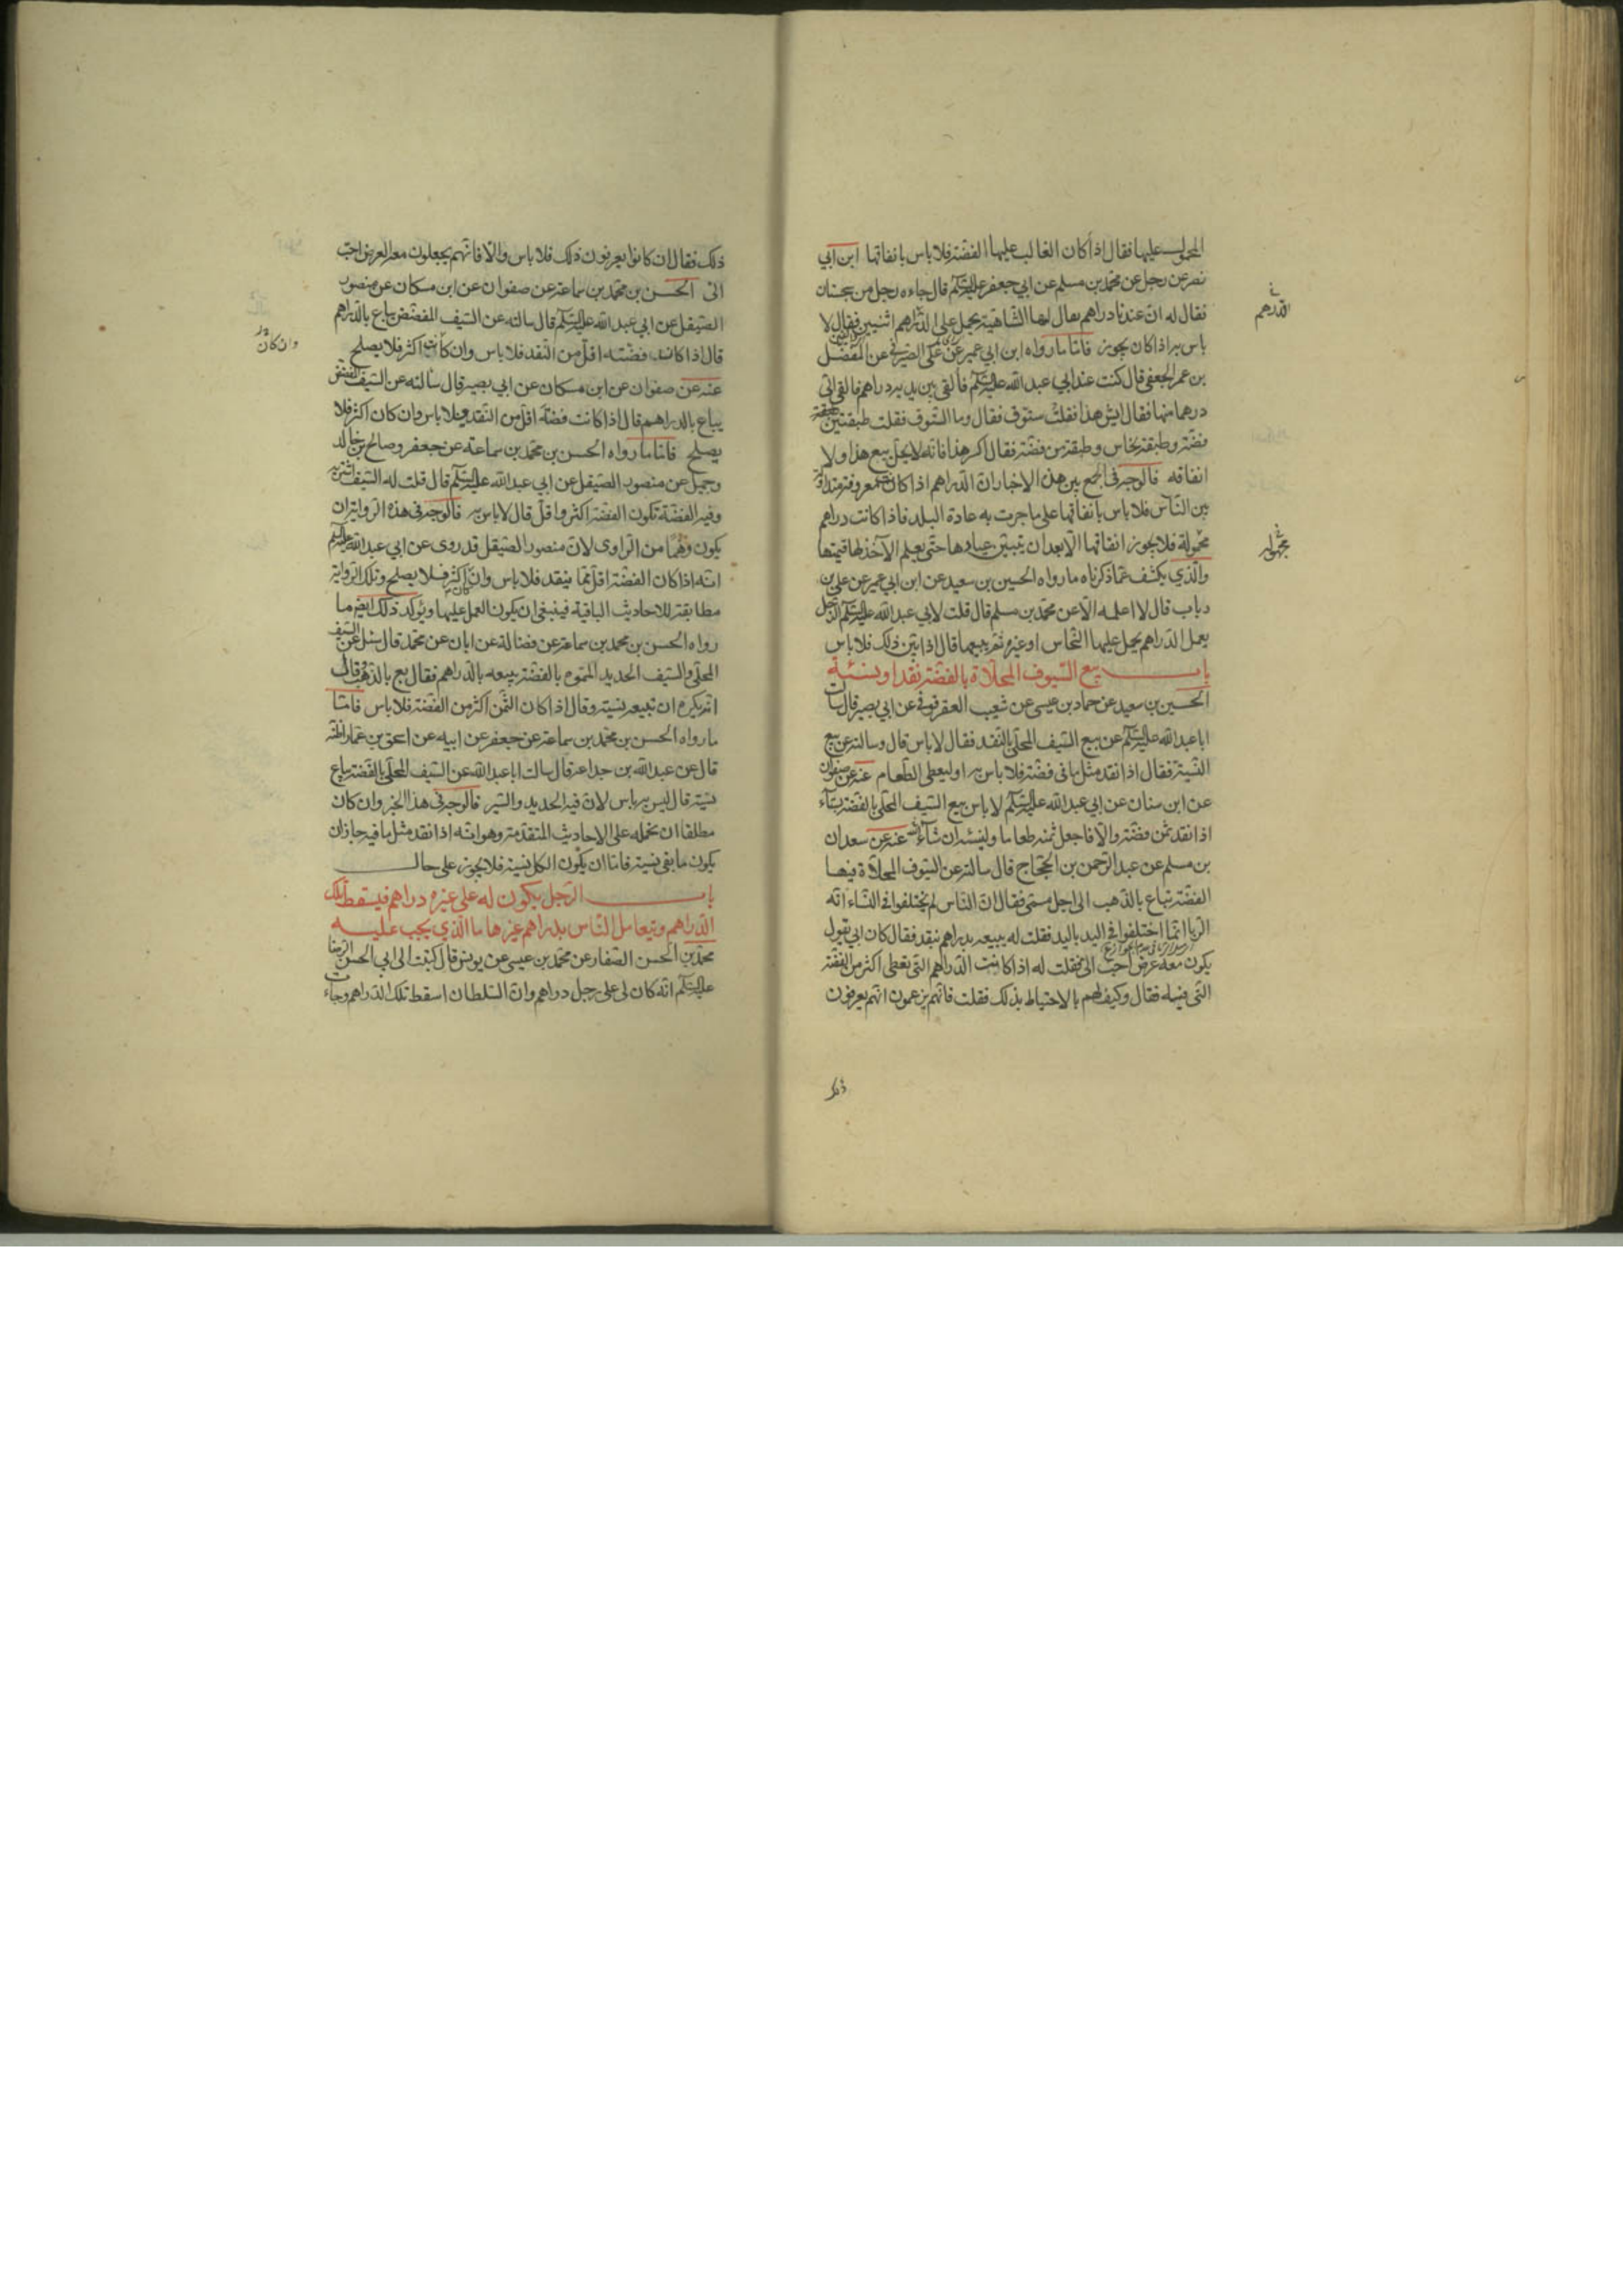 المحمول عليها فقال اذا كان الغالب عليها الفضة فلا باس بانفاقها ابن ابي
نصر عن رجل عن محمد بن مسلم عن ابي جعفر عليه السلام قال جاءه رجل من سجستان
فقال له ان عندنا دراهم يقال لها الشاهية يحمل على الدراهم اثنين فقال لا
باس به اذا كان يجوز فاما ما رواه ابن ابي عمير عن علي الصيرفي عن المفضل
بن عمر الجعفي قال كنت عند ابي عبد الله عليه السلام فالقى بين يديه دراهم فالقى الي
درهما منها فقال ايش هذا فقلت ستوق فقال وما الستوق فقلت طبقتين طبقة
فضة وطبقة نحاس وطبقة من فضة فقال اكسر هذا فانه لا يحل بيع هذا ولا
انفاقه فالوجه في الجمع بين هذه الاخبار ان الدراهم اذا كانت معروفة متداولة
بين الناس فلا باس بانفاقها على ما جرت به عادة البلد فاذا كانت دراهم
مجهولة فلا يجوز انفاقها الا بعد ان يتبين عيارها حتى يعلم الآخذ لها قيمتها
والذي يكشف عما ذكرناه ما رواه الحسين بن سعيد عن ابن ابي عمير عن علي بن
رباب قال لا اعلمه الا عن محمد بن مسلم قال قلت لابي عبد الله عليه السلام الرجل
يعمل الدراهم يحمل عليها النحاس او غيره ثم يبيعها قال اذا بين ذلك فلا باس
باب بيع السيوف المحلاة بالفضة نقدا ونسيئة
الحسين بن سعيد عن حماد بن عيسى عن شعيب العقرقوفي عن ابي بصير قال سالت
ابا عبد الله عليه السلام عن بيع السيف المحلى بالنقد فقال لا باس قال وسالته عن بيع
النسية فقال اذا نقد مثل ما في فضته فلا باس به او ليعطي الطعام عنه عن صفوان
عن ابن سنان عن ابي عبد الله عليه السلام لا باس ببيع السيف المحلى بالفضة بنساء
اذا نقد ثمن فضته والا فاجعل ثمنه طعاما ولينسئه ان شاء عنه عن سعدان
بن مسلم عن عبد الرحمن بن الحجاج قال سالته عن السيوف المحلاة فيها
الفضة تباع بالذهب الى اجل مسمى فقال ان الناس لم يختلفوا في النساء انه
الربا انما اختلفوا في اليد باليد فقلت له يبيعه بدراهم بنقد فقال كان ابي يقول
يكون معه عرض احب الي فقلت له اذا كانت الدراهم التي تعطى اكثر من الفضة
التي فيه فقال وكيف لهم بالاحتياط بذلك فقلت فانهم يزعمون انهم يعرفون
الدرهم
مجهولة
ذلك
ذلك فقال ان كانوا يعرفون ذلك فلا باس والا فانهم يجعلون معه العرض احب
الي الحسن بن محمد بن سماعة عن صفوان عن ابن مسكان عن منصور
الصيقل عن ابي عبد الله عليه السلام قال سالته عن السيف المفضض يباع بالدراهم
قال اذا كانت فضته اقل من النقد فلا باس وان كانت اكثر فلا يصلح
عنه عن صفوان عن ابن مسكان عن ابي بصير قال سالته عن السيف المفضض
يباع بالدراهم قال اذا كانت فضته اقل من النقد فلا باس وان كان اكثر فلا
يصلح فاما ما رواه الحسن بن محمد بن سماعة عن جعفر وصالح بن خالد
وجميل عن منصور الصيقل عن ابي عبد الله عليه السلام قال قلت له السيف اشتريه
وفيه الفضة تكون الفضة اكثر واقل قال لا باس به فالوجه في هذه الرواية ان
يكون وهما من الراوي لان منصور الصيقل قد روى عن ابي عبد الله عليه السلام
انه اذا كان الفضة اقل مما ينقد فلا باس وان كان اكثر فلا يصلح وتلك الرواية
مطابقة للاحاديث الباقية فينبغي ان يكون العمل عليها ويؤكد ذلك ايضا ما
رواه الحسن بن محمد بن سماعة عن فضالة عن ابان عن محمد قال سئل عن السيف
المحلى والسيف الحديد المموه بالفضة يبيعه بالدراهم فقال بع بالذهب وقال
انه يكره ان تبيعه بنسية وقال اذا كان الثمن اكثر من الفضة فلا باس فاما
ما رواه الحسن بن محمد بن سماعة عن جعفر عن ابيه عن اسحق بن عمار
قال عن عبد الله بن جذاعة قال سالت ابا عبد الله عن السيف المحلى بالفضة يباع
بنسية قال ليس به باس لان فيه الحديد والسير فالوجه في هذا الخبر وان كان
مطلقا ان نحمله على الاحاديث المتقدمة وهو انه اذا نقد مثل ما فيه جاز ان
يكون ما بقي نسية فاما ان يكون الكل نسية فلا يجوز على حال
باب الرجل يكون له على غيره دراهم فيسقط تلك
الدراهم ويتعامل الناس بدراهم غيرها ما الذي يجب عليه
محمد بن الحسن الصفار عن محمد بن عيسى عن يونس قال كتبت الى ابي الحسن الرضا
عليه السلام انه كان لي على رجل دراهم وان السلطان اسقط تلك الدراهم وجاءت
وان كان